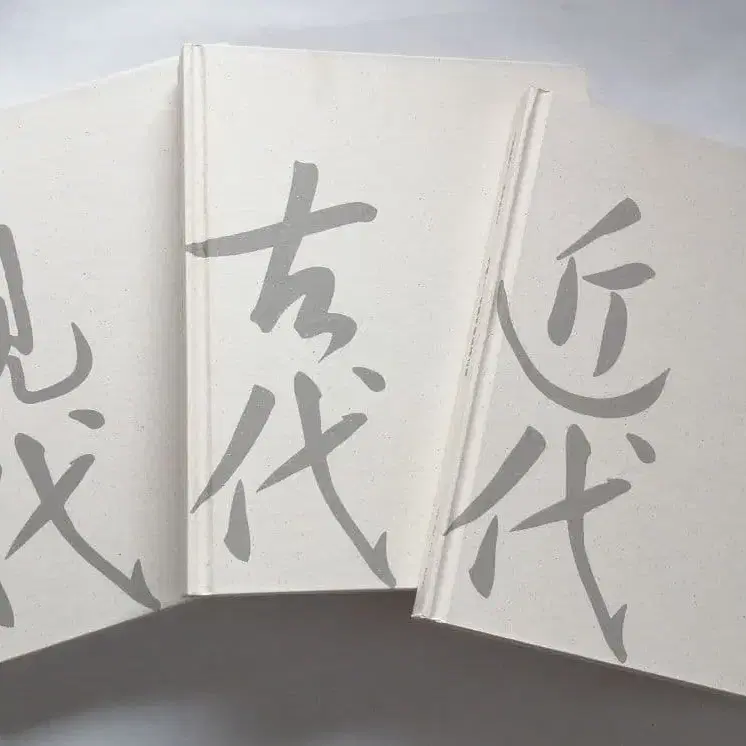 现代
古代
近代